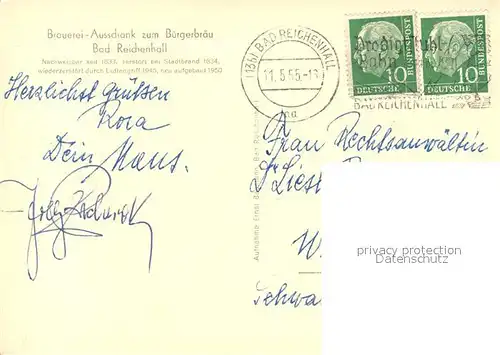 Brauerei-Ausschank zum Bürgerbräu
Bad Reichenhall
Nachweisbar seit 1633, zerstört bei Stadtbrand 1834,
wiederzerstört durch Luftangriff 1945, neu aufgebaut 1950
Herzlichst grüßen
Rosa
Dein Hans.
(13b) BAD REICHENHALL
11.5.55-18
Predigtstuhl
Bahn
BAD REICHENHALL
DEUTSCHE BUNDESPOST
10
DEUTSCHE BUNDESPOST
10
Frau Rechtsanwältin
Aufnahme Ernst
privacy protection
Datenschutz